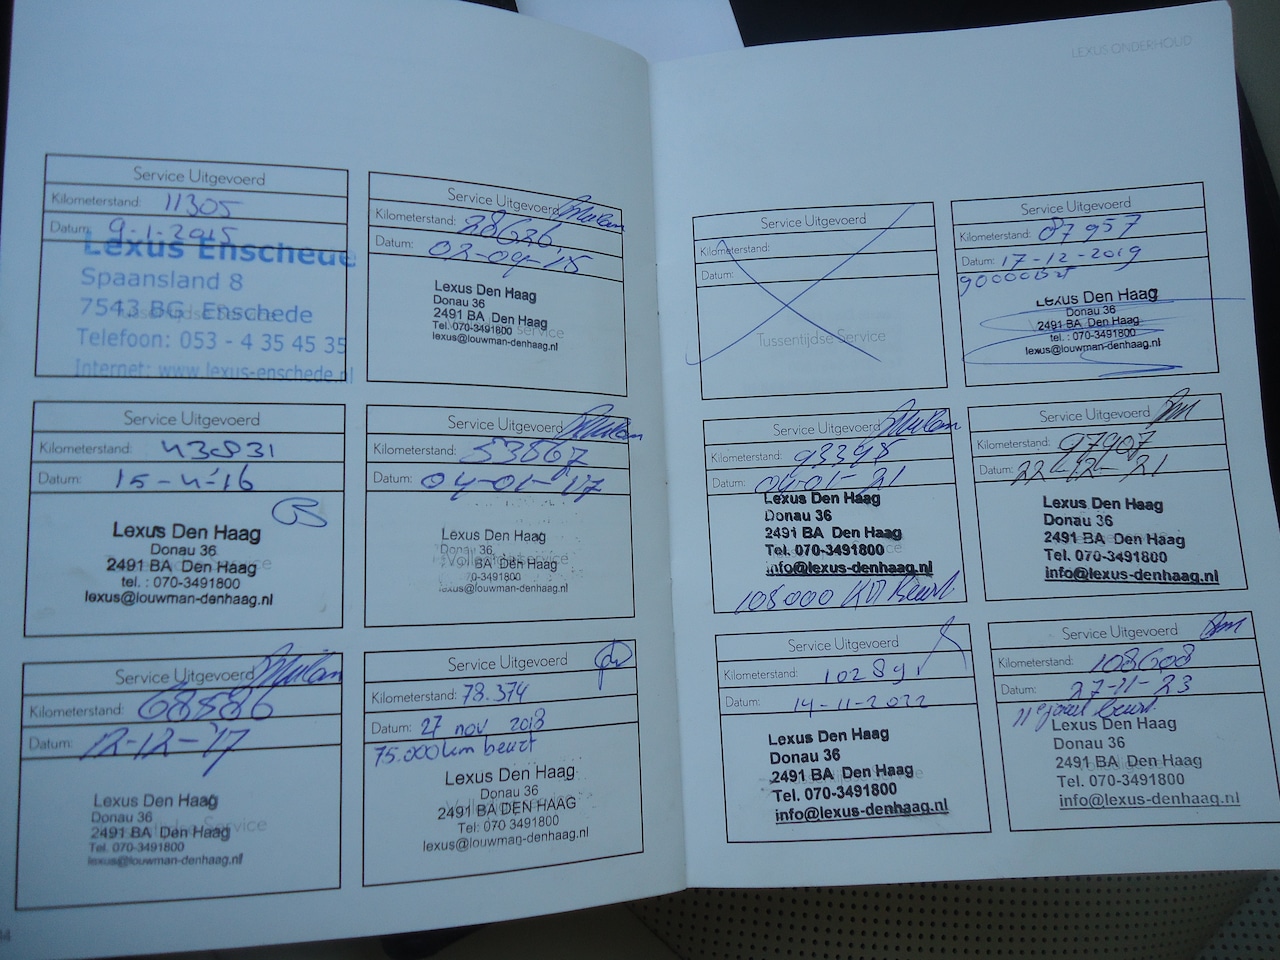 LEXUS ONDERHOUD
Service Uitgevoerd
Kilometerstand: 11305
Datum: 9-1-2015
Lexus Enschede
Spaansland 8
7543 BG Enschede
Telefoon: 053 - 4 35 45 35
Internet: www.lexus-enschede.nl
Service Uitgevoerd
Kilometerstand: 28626
Datum: 02-04-'15
Lexus Den Haag
Donau 36
2491 BA Den Haag
Tel. 070-3491800
lexus@louwman-denhaag.nl
Service Uitgevoerd
Kilometerstand: 43831
Datum: 15-4-'16
Lexus Den Haag
Donau 36
2491 BA Den Haag
tel. : 070-3491800
lexus@louwman-denhaag.nl
Service Uitgevoerd
Kilometerstand: 53867
Datum: 04-01-'17
Lexus Den Haag
Donau 36
BA Den Haag
70-3491800
lexus@louwman-denhaag.nl
Service Uitgevoerd
Kilometerstand: 68586
Datum: 12-12-'17
Lexus Den Haag
Donau 36
2491 BA Den Haag
Tel. 070-3491800
lexus@louwman-denhaag.nl
Service Uitgevoerd
Kilometerstand: 78.374
Datum: 27 nov 2018
75.000 km beurt
Lexus Den Haag
Donau 36
2491 BA DEN HAAG
Tel: 070 3491800
lexus@louwman-denhaag.nl
Service Uitgevoerd
Kilometerstand:
Datum:
Tussentijdse Service
Service Uitgevoerd
Kilometerstand: 87957
Datum: 17-12-2019
Lexus Den Haag
Donau 36
2491 BA Den Haag
tel. : 070-3491800
lexus@louwman-denhaag.nl
Service Uitgevoerd
Kilometerstand: 93398
Datum: 04-01-21
Lexus Den Haag
Donau 36
2491 BA Den Haag
Tel. 070-3491800
info@lexus-denhaag.nl
105000 KM Beurt
Service Uitgevoerd
Kilometerstand: 97907
Datum: 22-12-21
Lexus Den Haag
Donau 36
2491 BA Den Haag
Tel. 070-3491800
info@lexus-denhaag.nl
Service Uitgevoerd
Kilometerstand: 10289
Datum: 14-11-2022
Lexus Den Haag
Donau 36
2491 BA Den Haag
Tel. 070-3491800
info@lexus-denhaag.nl
Service Uitgevoerd
Kilometerstand: 108608
Datum: 27-11-23
11e jaars beurt
Lexus Den Haag
Donau 36
2491 BA Den Haag
Tel. 070-3491800
info@lexus-denhaag.nl